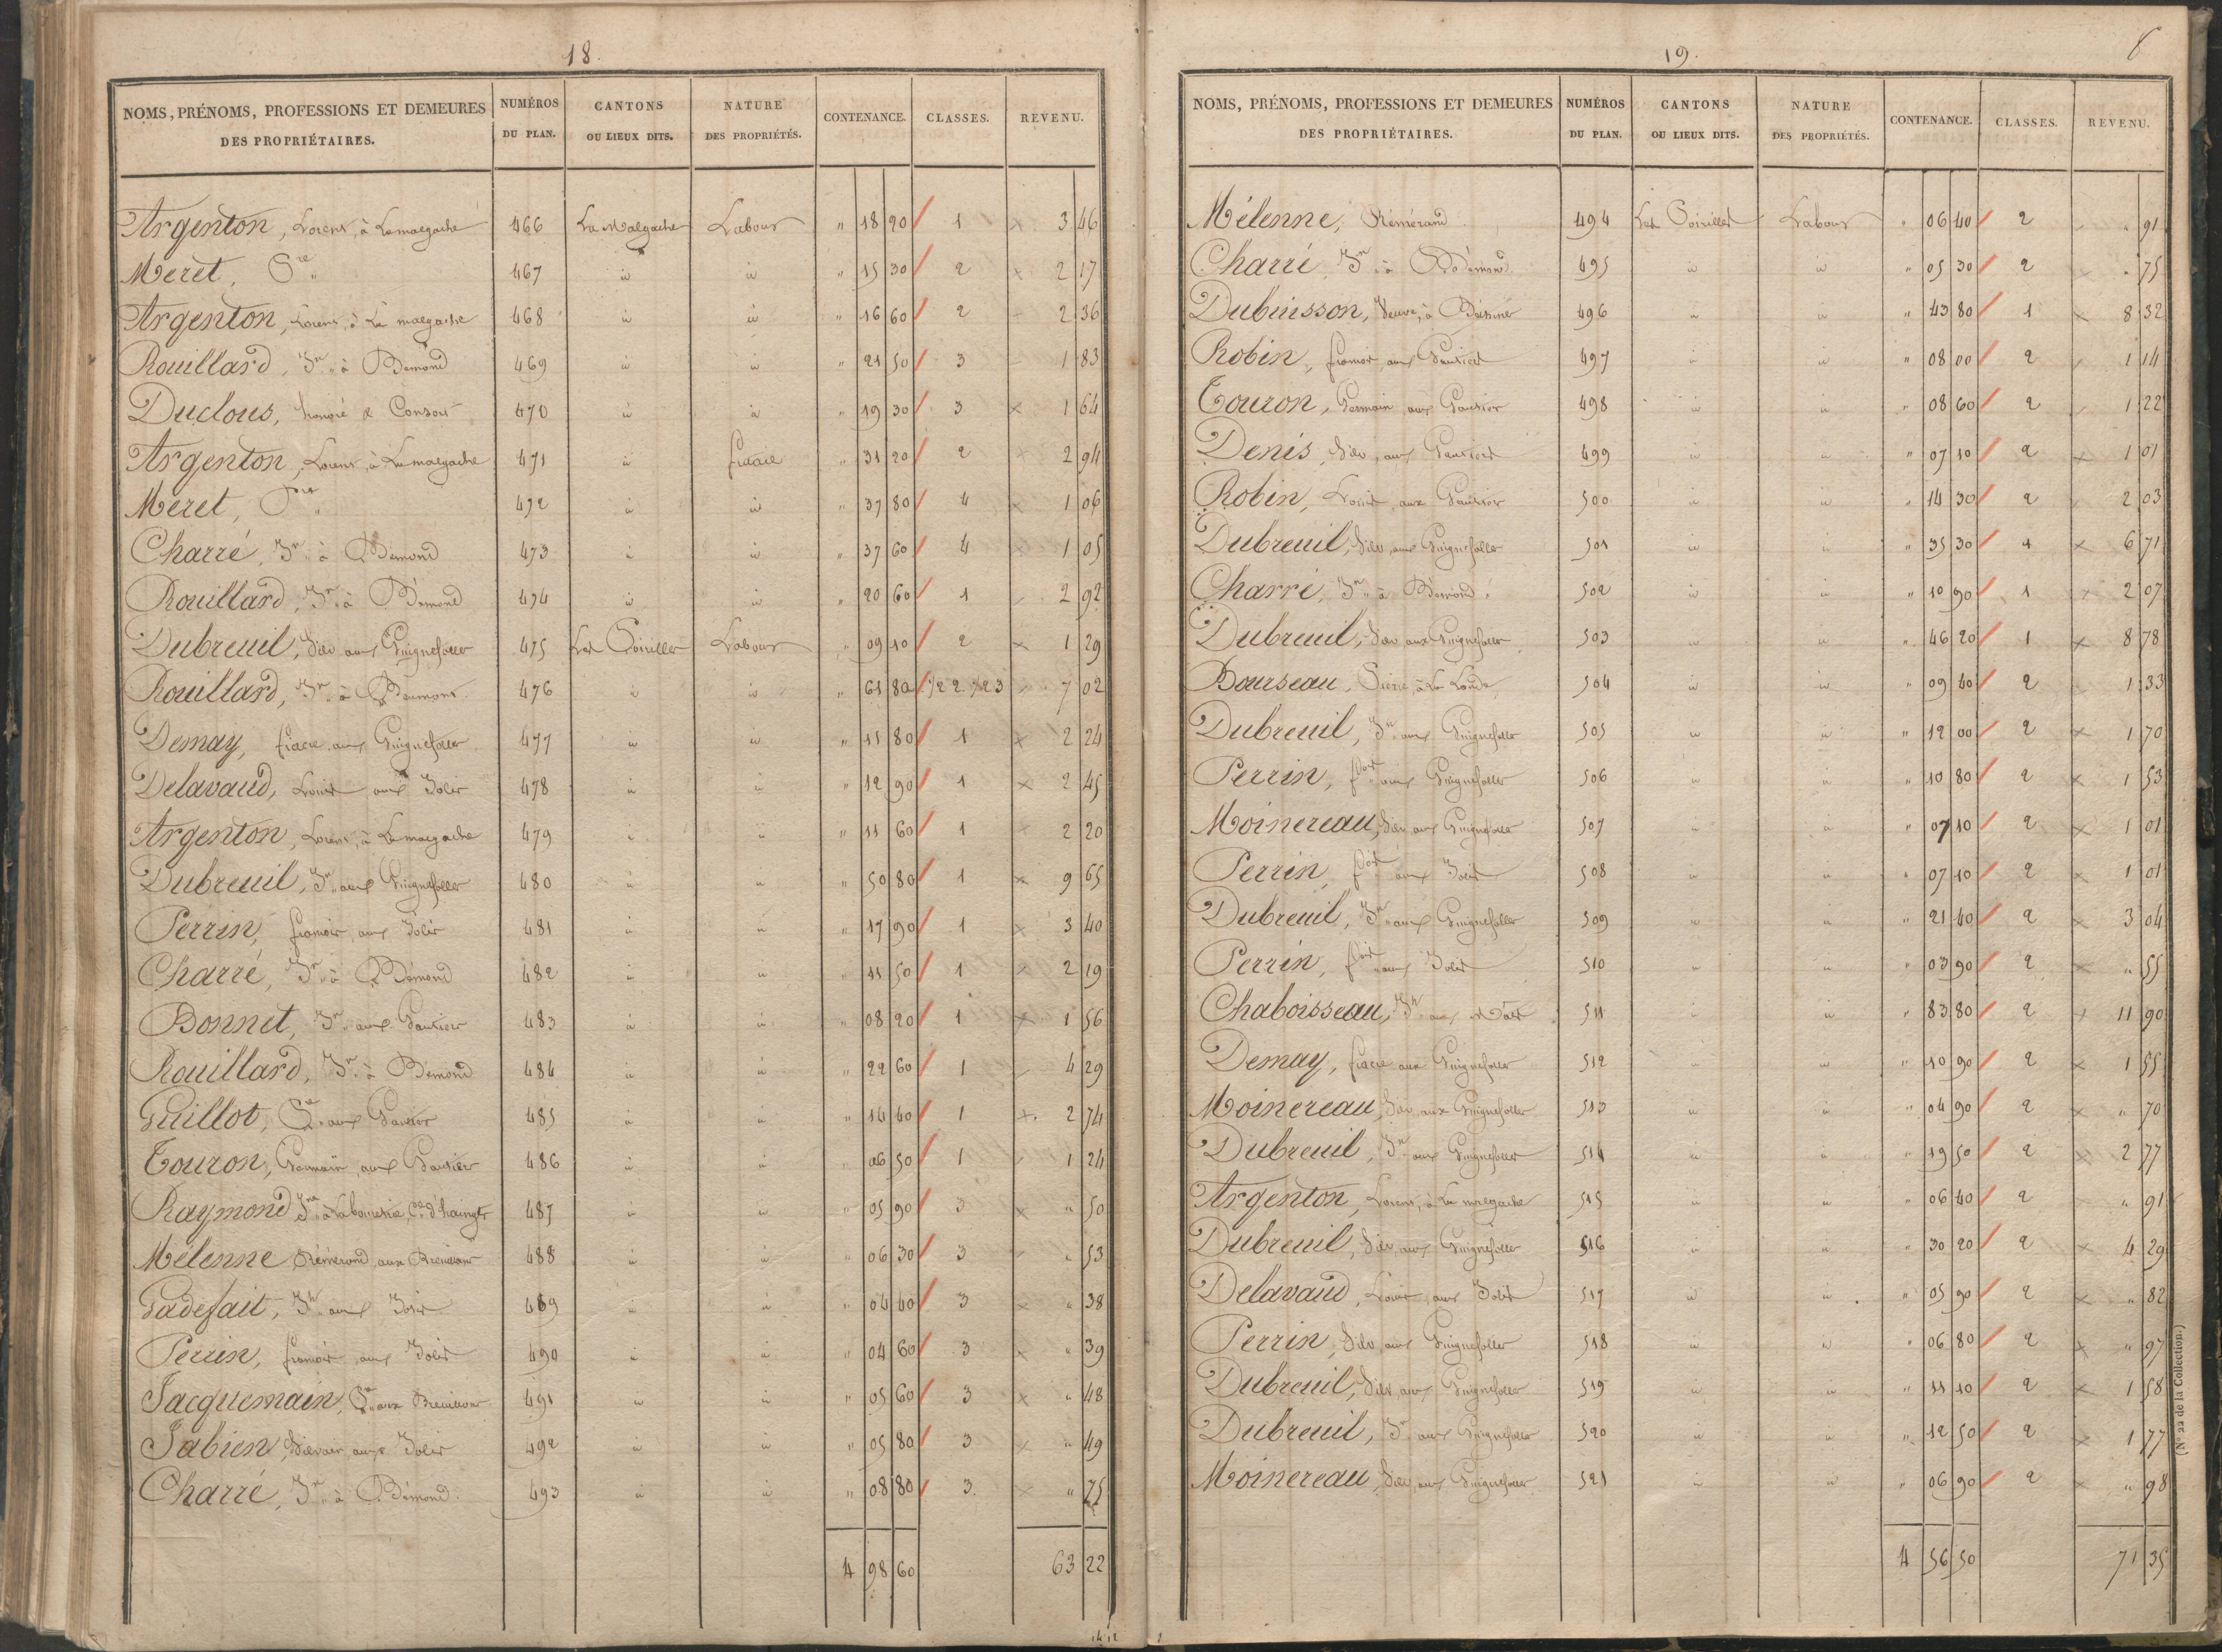 18.
NOMS, PRÉNOMS, PROFESSIONS ET DEMEURES DES PROPRIÉTAIRES. NUMÉROS DU PLAN. CANTONS OU LIEUX DITS. NATURE DES PROPRIÉTÉS. CONTENANCE. CLASSES. REVENU.
Argenton, Lorens, à Lamalgache 466 La Malgache Labour " 18 20 1 3 46
Meret, Pre 467 id id " 15 30 2 2 17
Argenton, Lorens, à La malgache 468 id id " 16 60 2 2 36
Rouillard, Jn à Bémond 469 id id " 21 50 3 1 83
Duclous, honoré & Consors 470 id id " 19 30 3 1 64
Argenton, Lorens, à La malgache 471 id 31 20 2 2 94
Meret, Pre 472 id id " 37 80 4 1 06
Charré, Jn à Bémond 473 id id " 37 60 4 1 05
Rouillard, Jn à Bémond 474 id id " 20 60 1 2 92
Dubreuil, Silv aux Guignefolles 475 Les Labour " 09 10 2 1 29
Rouillard, Jn à Beaumont 476 id id " 61 80 1/2 2 1/2 3 7 02
Demay, fiacre aux Guignefolles 477 id id " 11 80 1 2 24
Delavaud, Louis aux Jolis 478 id id " 12 90 1 2 45
Argenton, Lorens, à La malgache 479 id id " 11 60 1 2 20
Dubreuil, Jn aux Guignefolles 480 id id " 50 80 1 9 65
Perrin, aux Jolis 481 id id " 17 90 1 3 40
Charré, Jn à Bémond 482 id id " 11 50 1 2 19
Bonnet, Jn aux Gautier 483 id id " 08 20 1 1 56
Rouillard, Jn à Bémond 484 id id " 22 60 1 4 29
Guillot, aux Gautier 485 id id " 14 40 1 2 74
Touron, Germain, aux Gautier 486 id id " 06 50 1 1 24
Raymond Jn à 487 id id " 05 90 3 " 50
Mélenne Rémérand aux 488 id id " 06 30 3 " 53
Gadefait, Jh aux Jolis 489 id id " 04 40 3 " 38
Perrin, aux Jolis 490 id id " 04 60 3 " 39
Jacquemain, aux 491 id id " 05 60 3 " 48
Jabien, Silvain, aux Jolis 492 id id " 05 80 3 " 49
Charré, Jn à Bémond 493 id id " 08 80 3 " 75
4 98 60 63 22
19.
6
NOMS, PRÉNOMS, PROFESSIONS ET DEMEURES DES PROPRIÉTAIRES. NUMÉROS DU PLAN. CANTONS OU LIEUX DITS. NATURE DES PROPRIÉTÉS. CONTENANCE. CLASSES. REVENU.
Mélenne, Rémérand 494 Les Labour " 06 40 2 " 91
Charré Jn à Bémond 495 id id " 05 30 2 " 75
Dubuisson, Veuve, à 496 id id " 43 80 1 8 32
Robin, aux Gautier 497 id id " 08 00 2 1 14
Touron, Germain aux Gautier 498 id id " 08 60 2 1 22
Denis, Silv, aux Gautier 499 id id " 07 10 2 1 01
Robin, Louis, aux Gautier 500 id id " 14 30 2 2 03
Dubreuil, Silv, aux Guignefolles 501 id id " 35 30 1 6 71
Charré, Jn à Bémond 502 id id " 10 90 1 2 07
Dubreuil, Silv aux Guignefolles 503 id id " 46 20 1 8 78
Bourseau, Pierre, à La Lande 504 id id " 09 40 2 1 33
Dubreuil, Jn aux Guignefolles 505 id id " 12 00 2 1 70
Perrin, fois aux Guignefolles 506 id id " 10 80 2 1 53
Moinereau, Silv, aux Guignefolles 507 id id " 07 10 2 1 01
Perrin, fois aux Jolis 508 id id " 07 10 2 1 01
Dubreuil, Jn aux Guignefolles 509 id id " 21 40 2 3 04
Perrin, fois aux Jolis 510 id id " 03 90 2 " 55
Chaboisseau, Jh aux 511 id id " 83 80 2 11 90
Demay, fiacre aux Guignefolles 512 id id " 10 90 2 1 55
Moinereau, Silv, aux Guignefolles 513 id id " 04 90 2 " 70
Dubreuil, Jn aux Guignefolles 514 id id " 19 50 2 2 77
Argenton, Lorens, à La malgache 515 id id " 06 40 2 " 91
Dubreuil, Silv, aux Guignefolles 516 id id " 30 20 2 4 29
Delavaud, Louis, aux Jolis 517 id id " 05 90 2 " 82
Perrin, Silv, aux Guignefolles 518 id id " 06 80 2 " 97
Dubreuil, Silv, aux Guignefolles 519 id id " 11 10 2 1 58
Dubreuil, Jn aux Guignefolles 520 id id " 12 50 2 1 77
Moinereau, Silv, aux Guignefolles 521 id id " 06 90 2 " 98
4 56 50 71 35
(N° 22 de la Collection.)